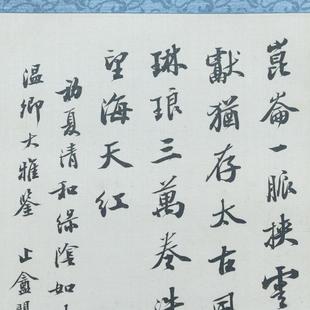 崑崙一脈挾雲
獻猶存太古
琳琅三萬卷
望海天紅
初夏清和綠陰如
溫卿大雅鑒
止盦